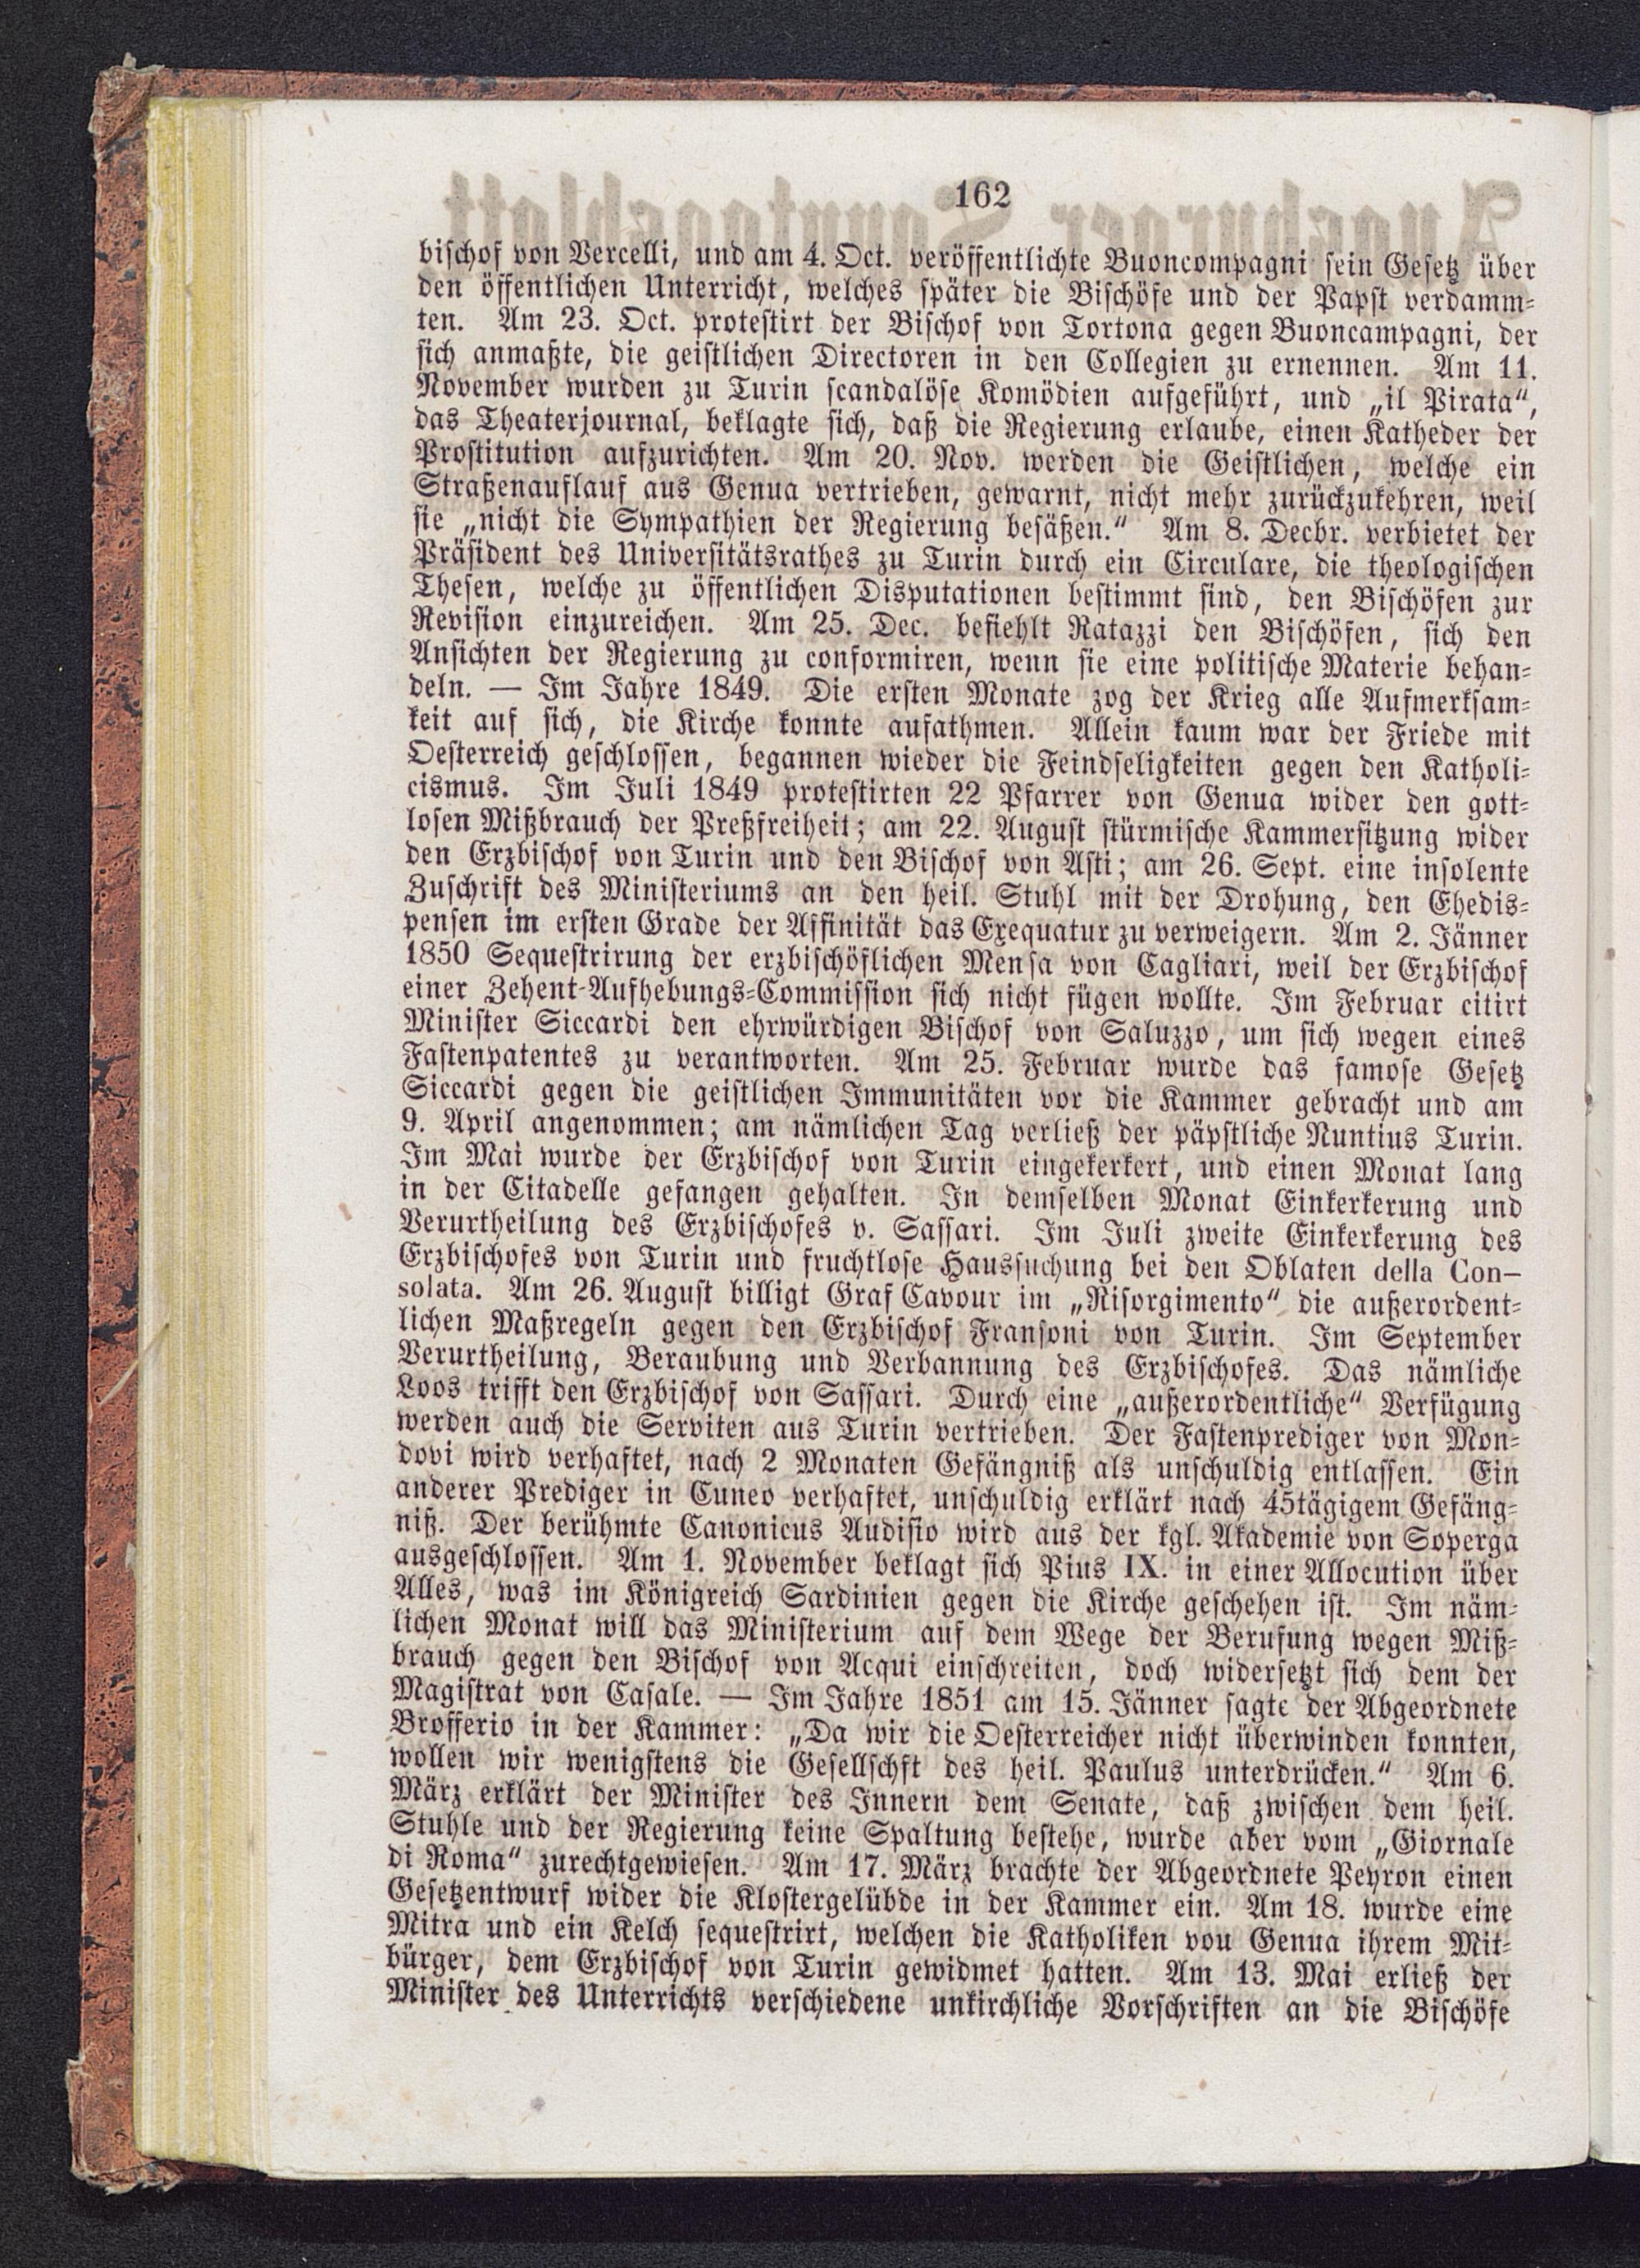 162
bischof von Vercelli, und am 4. Oct. veröffentlichte Buoncompagni sein Gesetz über
den öffentlichen Unterricht, welches später die Bischöfe und der Papst verdamm-
ten. Am 23. Oct. protestirt der Bischof von Tortona gegen Buoncampagni, der
sich anmaßte, die geistlichen Directoren in den Collegien zu ernennen. Am 11.
November wurden zu Turin scandalöse Komödien aufgeführt, und „il Pirata“,
das Theaterjournal, beklagte sich, daß die Regierung erlaube, einen Katheder der
Prostitution aufzurichten. Am 20. Nov. werden die Geistlichen, welche ein
Straßenauflauf aus Genua vertrieben, gewarnt, nicht mehr zurückzukehren, weil
sie „nicht die Sympathien der Regierung besäßen.“ Am 8. Decbr. verbietet der
Präsident des Universitätsrathes zu Turin durch ein Circulare, die theologischen
Thesen, welche zu öffentlichen Disputationen bestimmt sind, den Bischöfen zur
Revision einzureichen. Am 25. Dec. befiehlt Ratazzi den Bischöfen, sich den
Ansichten der Regierung zu conformiren, wenn sie eine politische Materie behan-
deln. — Im Jahre 1849. Die ersten Monate zog der Krieg alle Aufmerksam-
keit auf sich, die Kirche konnte aufathmen. Allein kaum war der Friede mit
Oesterreich geschlossen, begannen wieder die Feindseligkeiten gegen den Katholi-
cismus. Im Juli 1849 protestirten 22 Pfarrer von Genua wider den gott-
losen Mißbrauch der Preßfreiheit; am 22. August stürmische Kammersitzung wider
den Erzbischof von Turin und den Bischof von Asti; am 26. Sept. eine insolente
Zuschrift des Ministeriums an den heil. Stuhl mit der Drohung, den Ehedis-
pensen im ersten Grade der Affinität das Exequatur zu verweigern. Am 2. Jänner
1850 Sequestrirung der erzbischöflichen Mensa von Cagliari, weil der Erzbischof
einer Zehent-Aufhebungs-Commission sich nicht fügen wollte. Im Februar citirt
Minister Siccardi den ehrwürdigen Bischof von Saluzzo, um sich wegen eines
Fastenpatentes zu verantworten. Am 25. Februar wurde das famose Gesetz
Siccardi gegen die geistlichen Immunitäten vor die Kammer gebracht und am
9. April angenommen; am nämlichen Tag verließ der päpstliche Nuntius Turin.
Im Mai wurde der Erzbischof von Turin eingekerkert, und einen Monat lang
in der Citadelle gefangen gehalten. In demselben Monat Einkerkerung und
Verurtheilung des Erzbischofes v. Sassari. Im Juli zweite Einkerkerung des
Erzbischofes von Turin und fruchtlose Haussuchung bei den Oblaten della Con-
solata. Am 26. August billigt Graf Cavour im „Risorgimento“ die außerordent-
lichen Maßregeln gegen den Erzbischof Fransoni von Turin. Im September
Verurtheilung, Beraubung und Verbannung des Erzbischofes. Das nämliche
Loos trifft den Erzbischof von Sassari. Durch eine „außerordentliche“ Verfügung
werden auch die Serviten aus Turin vertrieben. Der Fastenprediger von Mon-
dovi wird verhaftet, nach 2 Monaten Gefängniß als unschuldig entlassen. Ein
anderer Prediger in Cuneo verhaftet, unschuldig erklärt nach 45tägigem Gefäng-
niß. Der berühmte Canonicus Audisio wird aus der kgl. Akademie von Soperga
ausgeschlossen. Am 1. November beklagt sich Pius IX. in einer Allocution über
Alles, was im Königreich Sardinien gegen die Kirche geschehen ist. Im näm-
lichen Monat will das Ministerium auf dem Wege der Berufung wegen Miß-
brauch gegen den Bischof von Acqui einschreiten, doch widersetzt sich dem der
Magistrat von Casale. — Im Jahre 1851 am 15. Jänner sagte der Abgeordnete
Brofferio in der Kammer: „Da wir die Oesterreicher nicht überwinden konnten,
wollen wir wenigstens die Gesellschft des heil. Paulus unterdrücken.“ Am 6.
März erklärt der Minister des Innern dem Senate, daß zwischen dem heil.
Stuhle und der Regierung keine Spaltung bestehe, wurde aber vom „Giornale
di Roma“ zurechtgewiesen. Am 17. März brachte der Abgeordnete Peyron einen
Gesetzentwurf wider die Klostergelübde in der Kammer ein. Am 18. wurde eine
Mitra und ein Kelch sequestrirt, welchen die Katholiken vou Genua ihrem Mit-
bürger, dem Erzbischof von Turin gewidmet hatten. Am 13. Mai erließ der
Minister des Unterrichts verschiedene unkirchliche Vorschriften an die Bischöfe